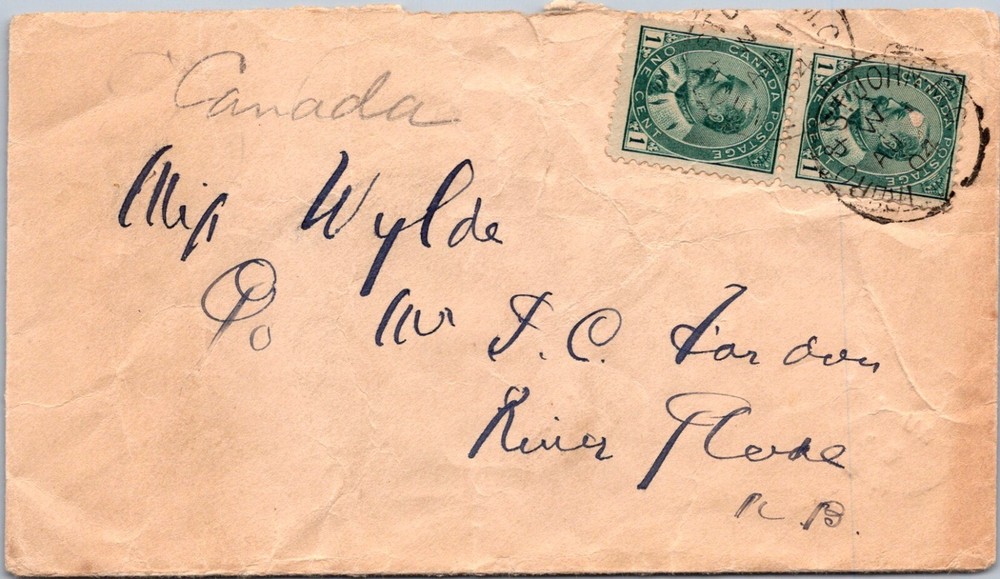 Canada
Miss Wylde
Mr J. C. Gordon
River Glade
N. B.
CANADA POSTAGE
ONE CENT
1 1
CANADA POSTAGE
ONE CENT
1 1
AU
04